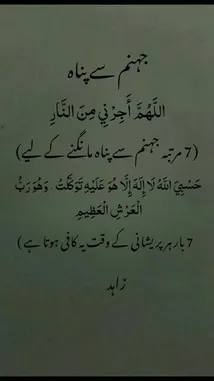 جہنم سے پناہ
اللَّهُمَّ أَجِرْنِي مِنَ النَّارِ
(7 مرتبہ جہنم سے پناہ مانگنے کے لیے)
حَسْبِيَ اللَّهُ لَا إِلَهَ إِلَّا هُوَ عَلَيْهِ تَوَكَّلْتُ. وَهُوَ رَبُّ
الْعَرْشِ الْعَظِيمِ
7 بار ہر پریشانی کے وقت یہ کافی ہوتا ہے)
زاہد